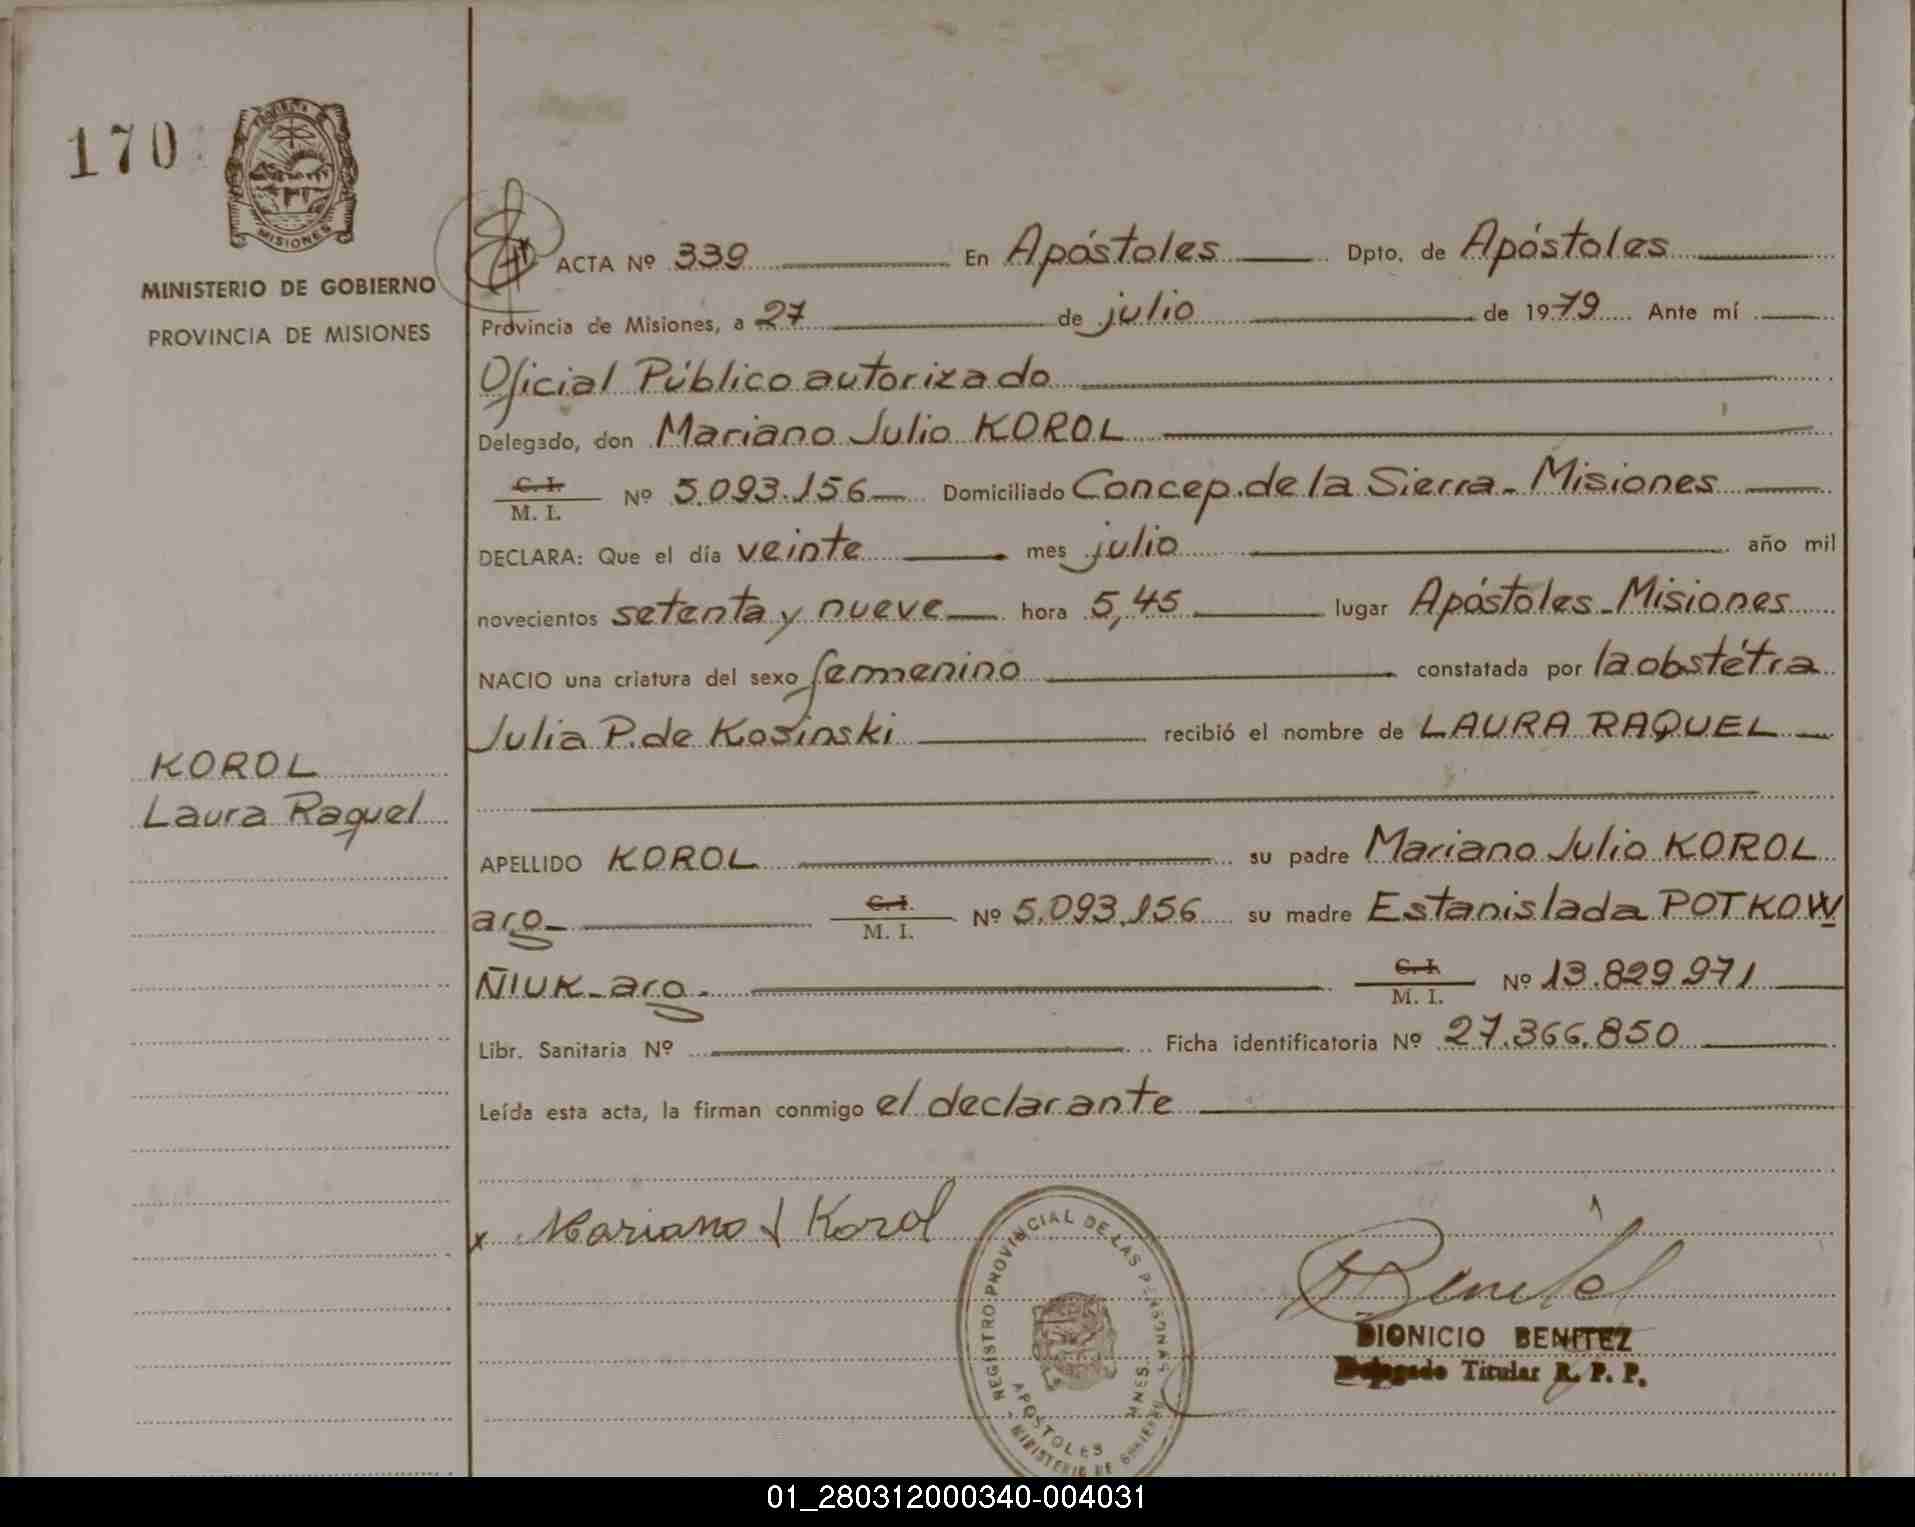 170
PROVINCIA DE
MISIONES
MINISTERIO DE GOBIERNO
PROVINCIA DE MISIONES
KOROL
Laura Raquel
ACTA Nº 339 En Apóstoles Dpto. de Apóstoles
Provincia de Misiones, a 27 de julio de 1979 Ante mí
Oficial Público autorizado
Delegado, don Mariano Julio KOROL
C. I.
M. I. Nº 5.093.156 Domiciliado Concep. de la Sierra - Misiones
DECLARA: Que el día veinte mes julio año mil
novecientos setenta y nueve hora 5,45 lugar Apóstoles - Misiones
NACIO una criatura del sexo femenino constatada por la obstétra
Julia P. de Kosinski recibió el nombre de LAURA RAQUEL
APELLIDO KOROL su padre Mariano Julio KOROL
arg. C. I.
M. I. Nº 5.093.156 su madre Estanislada POTKOW
ÑIUK - arg. C. I.
M. I. Nº 13.829.971
Libr. Sanitaria Nº Ficha identificatoria Nº 27.366.850
Leída esta acta, la firman conmigo el declarante
x Mariano J Korol
REGISTRO PROVINCIAL DE LAS PERSONAS
APOSTOLES MNES.
MINISTERIO DE GOBIERNO
Benitez
DIONICIO BENITEZ
Delegado Titular R. P. P.
01_280312000340-004031